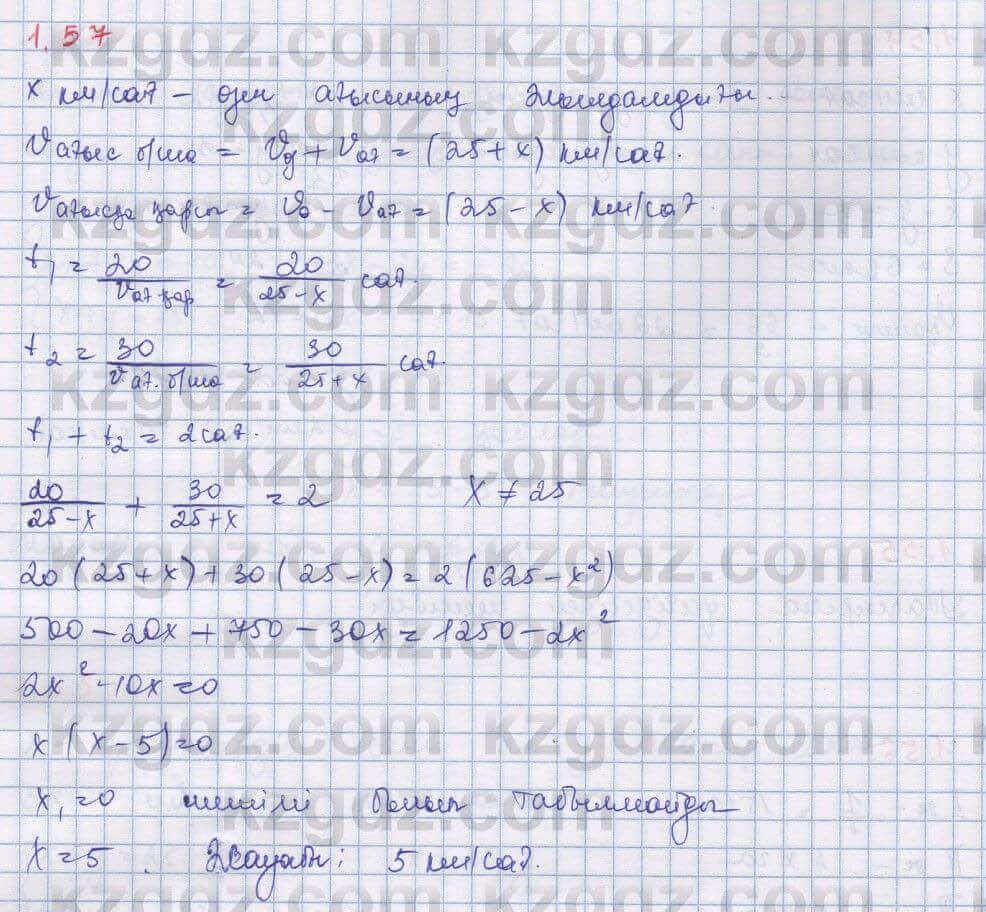 1.57
x км/сағ - өзен ағысының жылдамдығы.
Vағыс б/ша = Vд + Vағ = (25 + x) км/сағ.
Vағысқа қарсы = Vб - Vағ = (25 - x) км/сағ
t₁ = 20/Vағ қар = 20/(25 - x) сағ.
t₂ = 30/Vағ. б/ша = 30/(25 + x) сағ.
t₁ + t₂ = 2 сағ.
20/(25 - x) + 30/(25 + x) = 2 x ≠ 25
20(25 + x) + 30(25 - x) = 2(625 - x²)
500 - 20x + 750 - 30x = 1250 - 2x²
2x² - 10x = 0
x(x - 5) = 0
x₁ = 0 шешімі болып табылмайды
x = 5. Жауабы: 5 км/сағ.
kzgdz.com